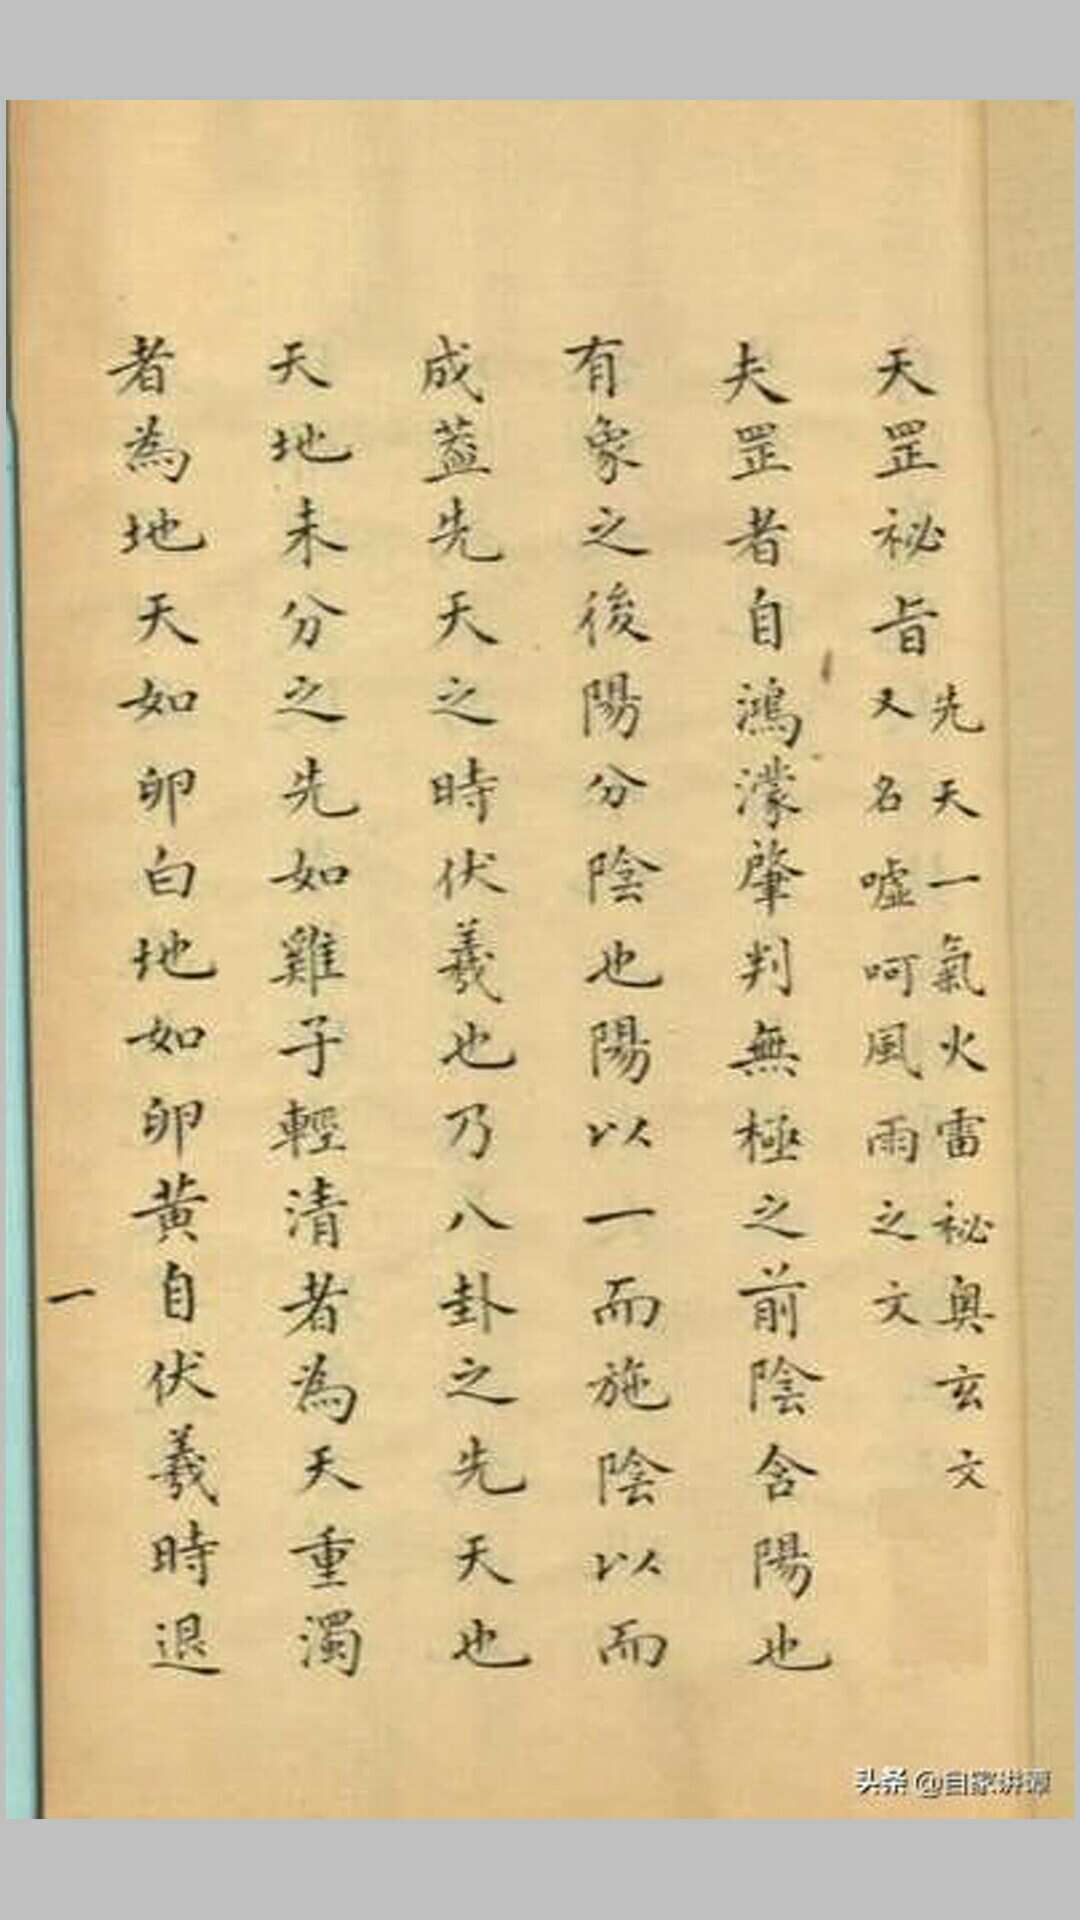 天罡祕旨
先天一氣火雷祕奧玄文
又名噓呵風雨之文
夫罡者自鴻濛肇判無極之前陰含陽也
有象之後陽分陰也陽以一而施陰以而
成蓋先天之時伏羲也乃八卦之先天也
天地未分之先如雞子輕清者為天重濁
者為地天如卵白地如卵黃自伏羲時退
一
头条 @自家讲谭